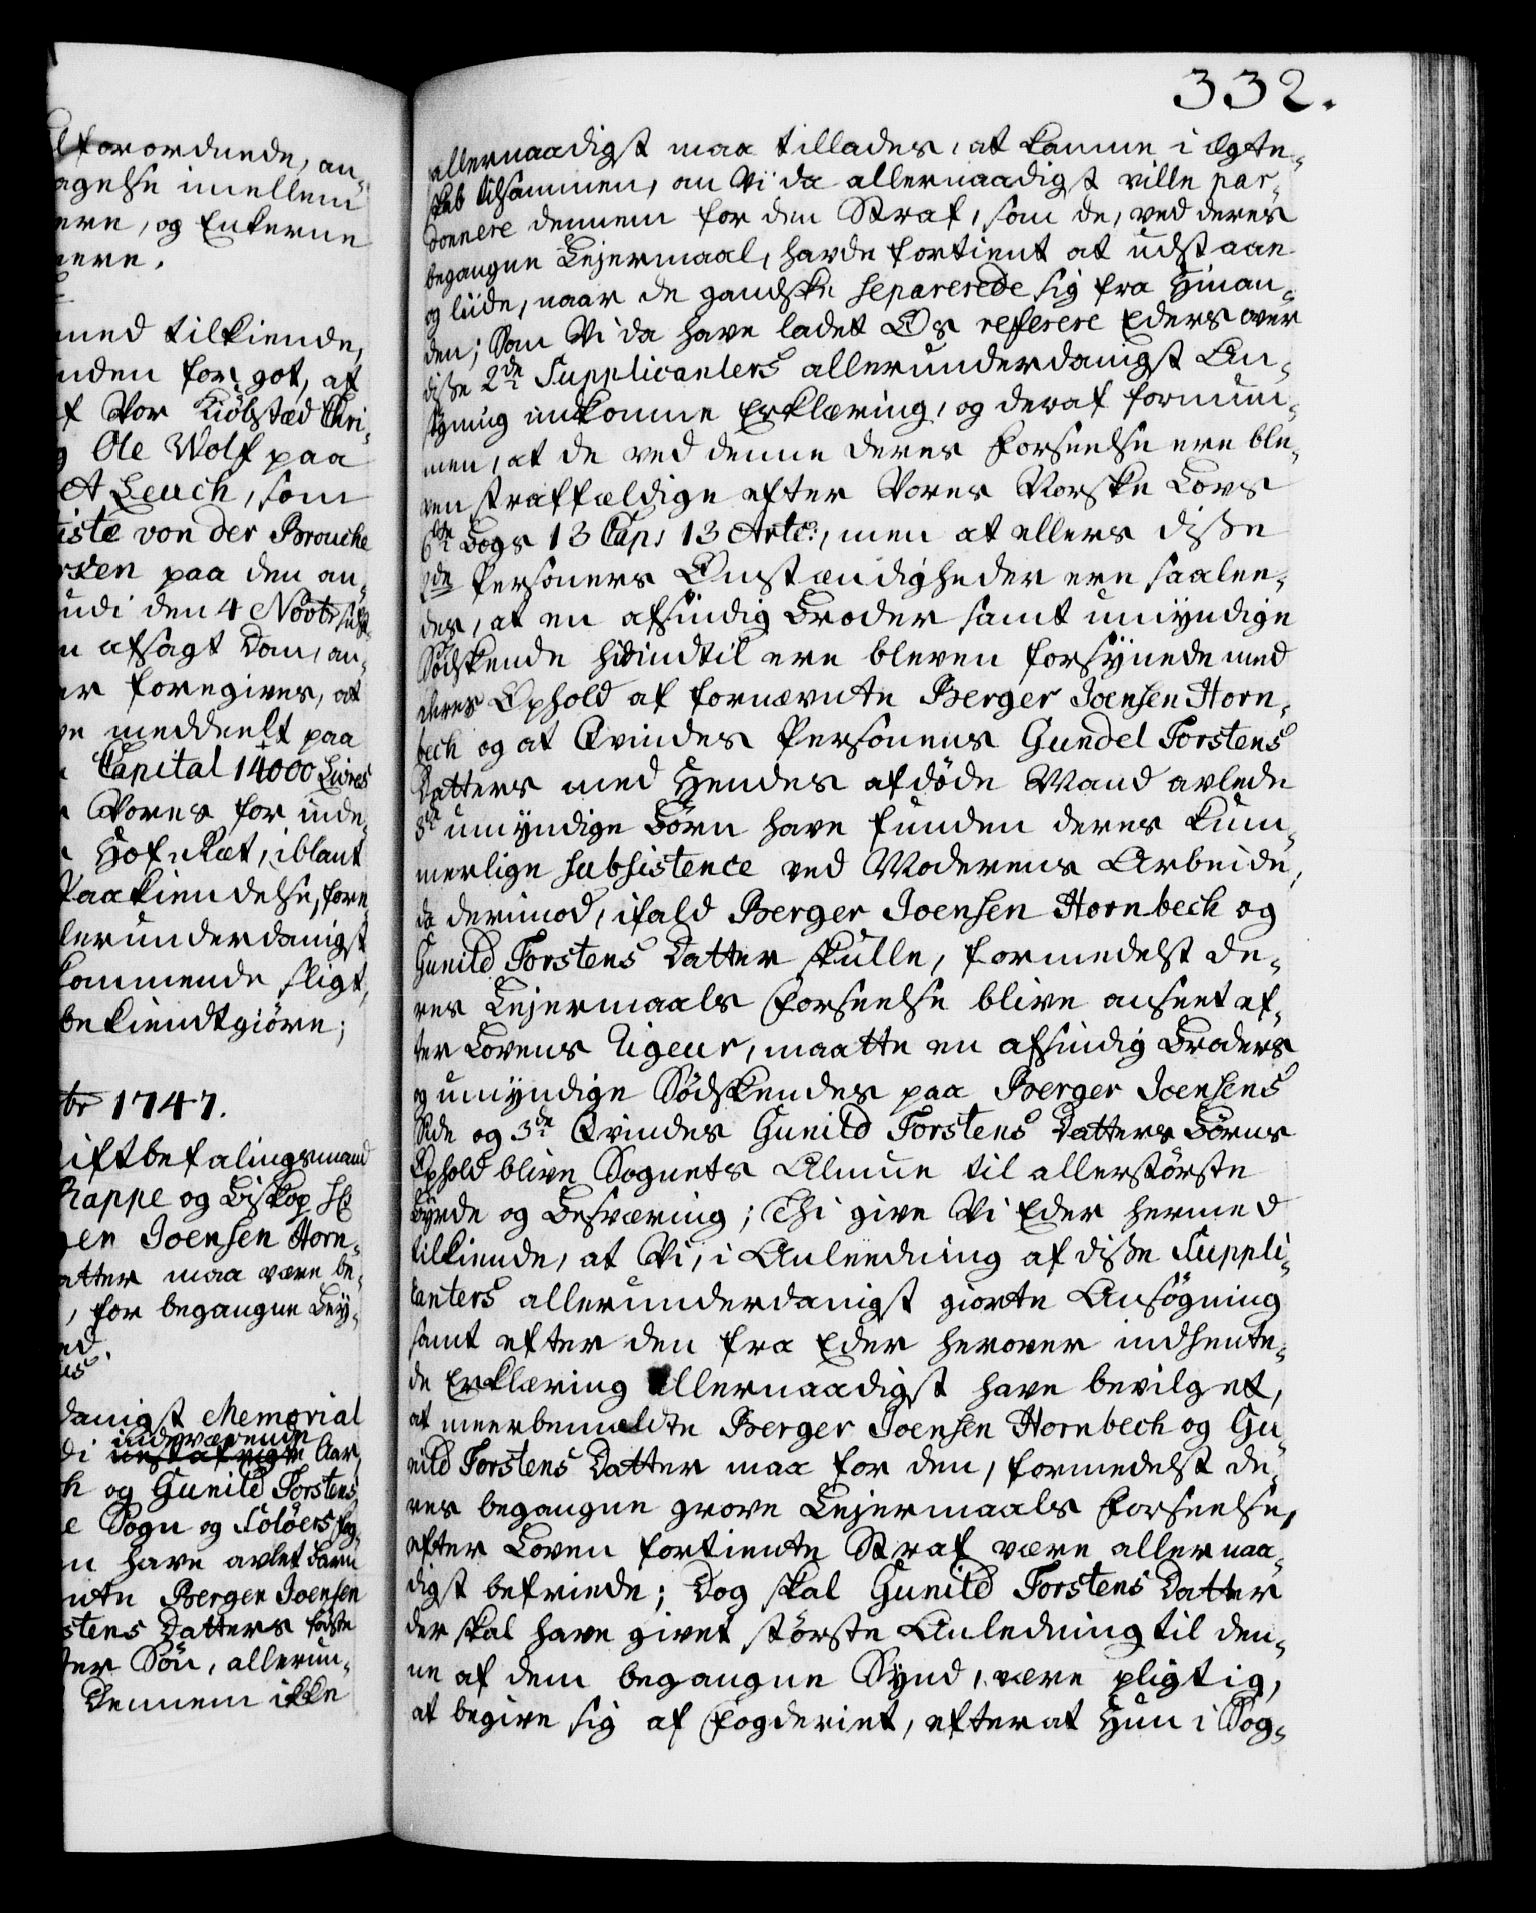 lforordnede, an-
agelse imellem
ere, og Enkerne
nere.
med tilkiende,
nden for got, at
f Vor Kiöbstæd Chri-
g Ole Wolf paa
A Leuch, som
iste von der Brouche
rsken paa den an-
udi den 4 Novbr sidst-
n afsagt Dom, an-
er foregives, at
ve meddeelt paa
Capital 14000 Livres
Vores for inde-
Hof-Ræt, iblant
Paakiendelse, fore
lerunderdanigst
kommende sligt,
bekiendtgiöre;
br 1747.
iftbefalingsmand
Rappe og Biskop H
en Joensen Horn-
atter maa være be-
, for begangne Ley-
ed.
danigst Memorial
indeværende
di nestafvigte Aar
h og Gunild Torstens
e Sogn og Solöers Fog-
n have avlet Barn
nte Berger Joensen
stens Datters første
ter Sön, allerun-
Dennem ikke
332.
allernaadigst maa tillades, at komme i Ægte-
skab tilsammen, om Vi da allernaadigst ville par-
donnere dennem for den Straf, som de, ved deres
begangne Lejermaal, havde fortient at udstaae
og liide, naar de gandske separerede sig fra Hinan-
den; Som Vi da have ladet Os referere Eders over
diße 2de Supplicanters allerunderdanigst An-
sögning inkomne Erklæring, og deraf fornum-
men, at de ved denne deres Forseelse ere ble-
ven straffældige efter Vores Norske Lovs
6te Bogs 13 Cap: 13 Artc:, men at ellers diße
2de Personers Omstændigheder ere saalee-
des, at en afsindig Broder samt umyndige
Södskende hidindtil ere bleven forsÿnede med
deres Ophold af fornævnte Berger Joensen Horn-
bech og at Qvindes Personens Gundel Torstens
Datters med Hendes afdöde Mand avlede
3de umyndige Börn have funden deres kum-
merlige subsistence ved Moderens Arbeide,
da derimod, ifald Berger Joensen Hornbech og
Gunild Torstens Datter skulle, formedelst de-
res Lejermaals Forseelse blive anseet ef-
ter Lovens Rigeur, maatte en afsindig Broders
og umyndige Södskendes paa Berger Joensens
Side og 3de Qvindes Gunild Torstens Datters Börns
Ophold blive Sognets Almue til allerstörste
Byrde og Besværing; Thi give Vi Eder hermed
tilkiende, at Vi, i Anleedning af diße Suppli-
canters allerunderdanigst giorte Ansögning
samt efter den fra Eder herover indhente-
de Erklæring Allernaadigst have bevilget,
at meerbemeldte Berger Joensen Hornbech og Gu-
nild Torstens Datter maa for den, formedelst de-
res begangne grove Lejermaals Forseelse,
efter Loven fortiente Straf være allernaa-
digst befriede; Dog skal Gunild Torstens Datter
der skal have givet störste Anledning til den-
ne af dem begangne Synd, være pligtig,
at begive sig af Fogderiet, efterat Hun i Sog-